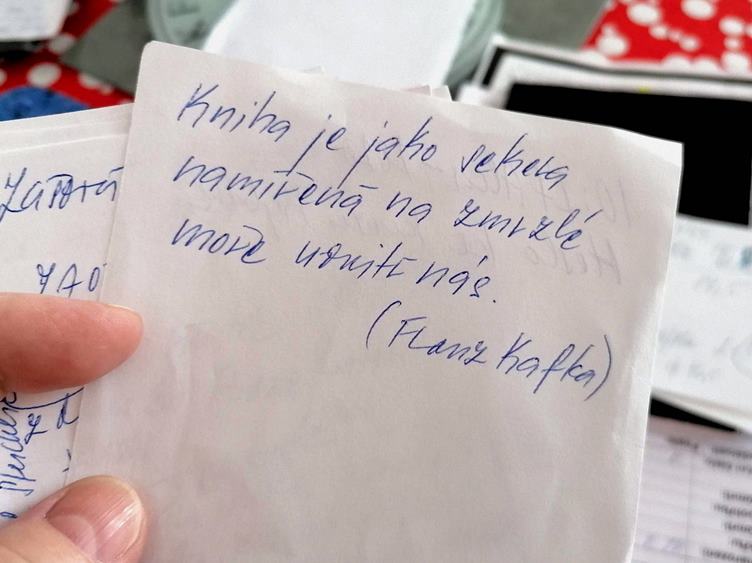 Kniha je jako sekera
namířená na zmrzlé
moře uvnitř nás.
(Franz Kafka)